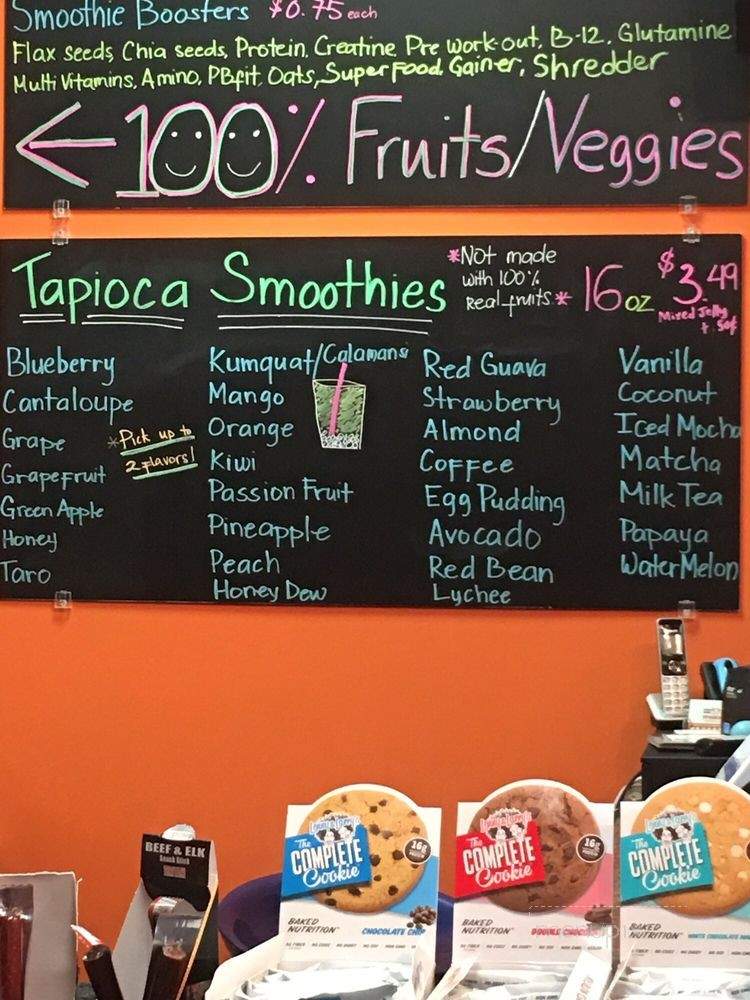 Smoothie Boosters $0.75 each
Flax seeds, Chia seeds, Protein, Creatine, Pre work-out, B-12, Glutamine
Multi Vitamins, Amino, PBfit, Oats, Super Food, Gainer, Shredder
100% Fruits/Veggies
Tapioca Smoothies
*Not made
with 100%
Real fruits*
16oz
$3.49
Mixed Jelly
+ .50¢
Blueberry
Cantaloupe
Grape
Grapefruit
Green Apple
Honey
Taro
*Pick up to
2 flavors!
Kumquat/Calamansi
Mango
Orange
Kiwi
Passion Fruit
Pineapple
Peach
Honey Dew
Red Guava
Strawberry
Almond
Coffee
Egg Pudding
Avocado
Red Bean
Lychee
Vanilla
Coconut
Iced Mocha
Matcha
Milk Tea
Papaya
WaterMelon
BEEF & ELK
Snack Stick
Lenny & Larry's
The
COMPLETE
Cookie
16g
BAKED
NUTRITION
CHOCOLATE CHIP
Lenny & Larry's
The
COMPLETE
Cookie
16g
BAKED
NUTRITION
DOUBLE CHOCO
The
COMPLETE
Cookie
BAKED
NUTRITION
WHITE CHOCOLATE